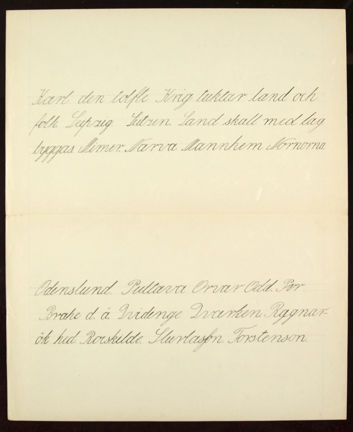 Karl den tolfte Krig tuktar land och
folk Leipzig Lützen Land skall med lag
byggas Mimer Narva Mannhem Nornorna
Odenslund Pultava Orvar Odd Per
Brahe d. ä. Qvidinge Qvarken Ragnar
ök hed Roeskilde Sturlason Torstenson